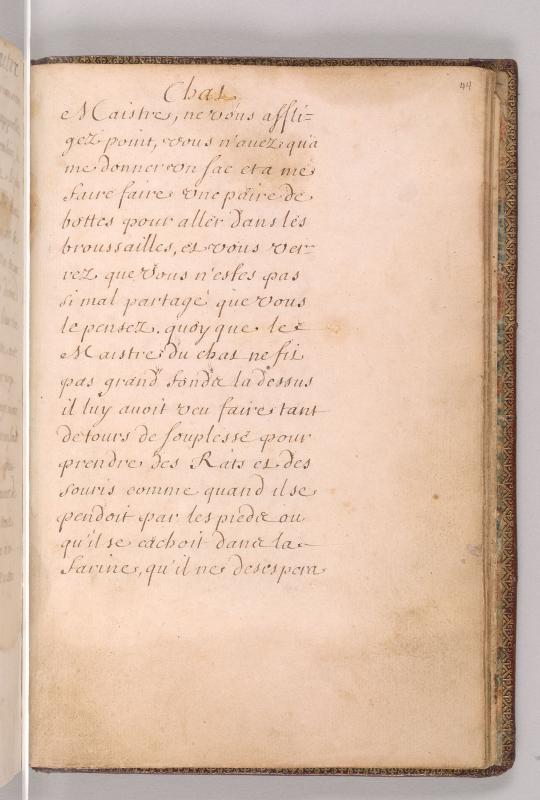 44
Chat
Maistre, ne vous affli-
gez point, vous n'avez qu'a
me donner un sac et a me
faire faire une paire de
bottes pour aller dans les
broussailles, et vous ver-
rez que vous n'estes pas
si mal partagé que vous
le pensez. quoy que le
Maistre du chat ne fit
pas grand fonds la dessus
il luy avoit veu faire tant
de tours de souplesse pour
prendre des Rats et des
souris comme quand il se
pendoit par les pieds ou
qu'il se cachoit dans la
farine, qu'il ne desespera